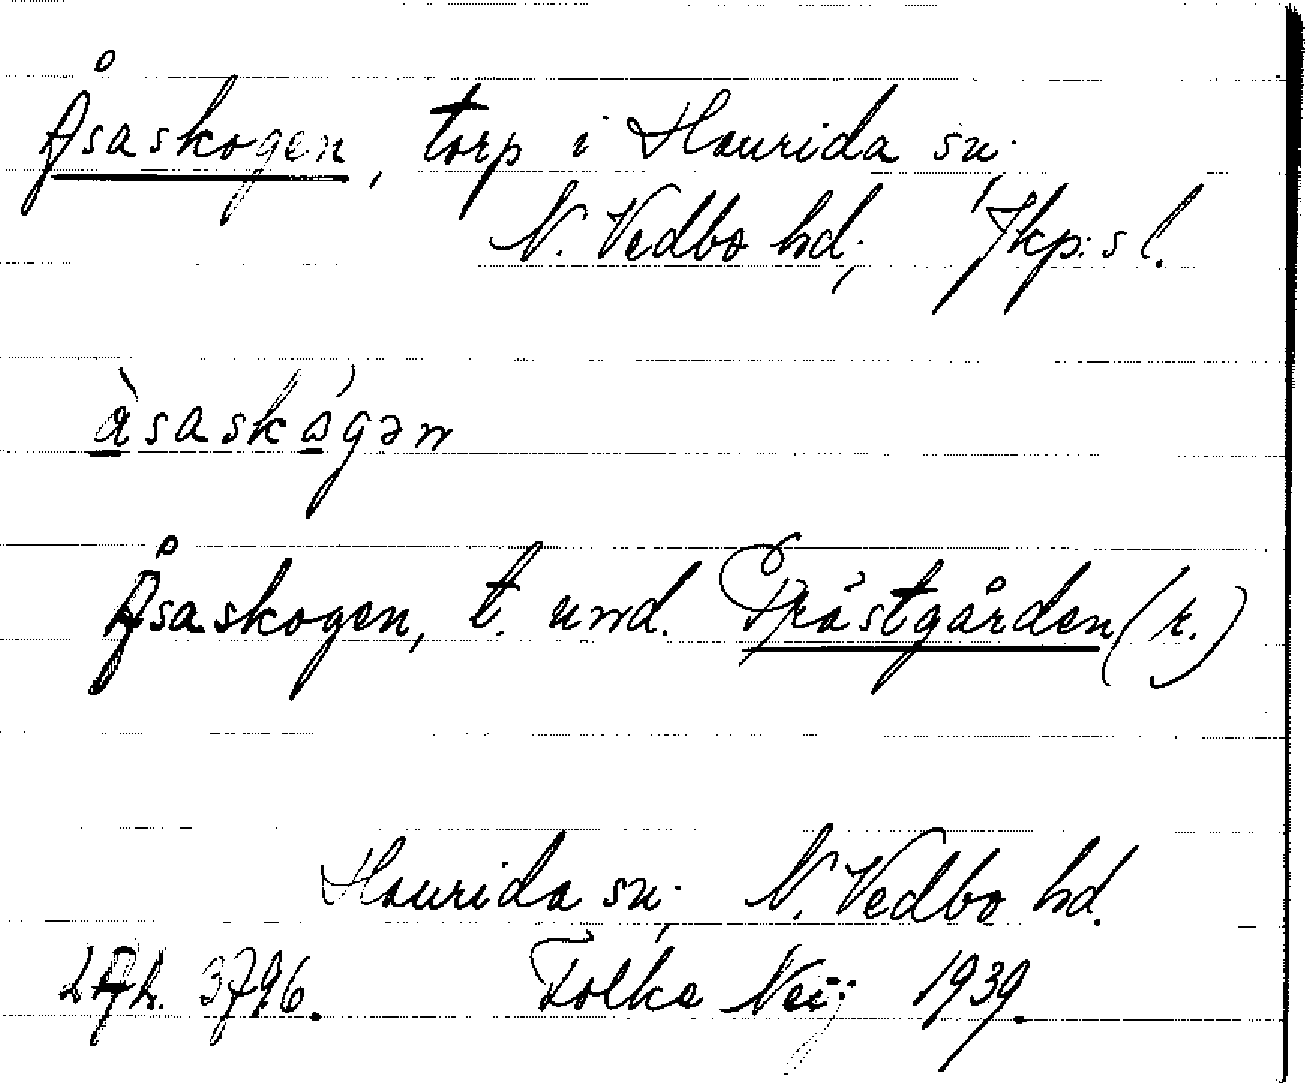 Åsaskogen, torp i Haurida sn.
N. Vedbo hd; Jkp:s l.
åsaskógən
Åsaskogen, t. und. Prästgården (r.)
Haurida sn. N. Vedbo hd.
3796. Folke Neij 1939.